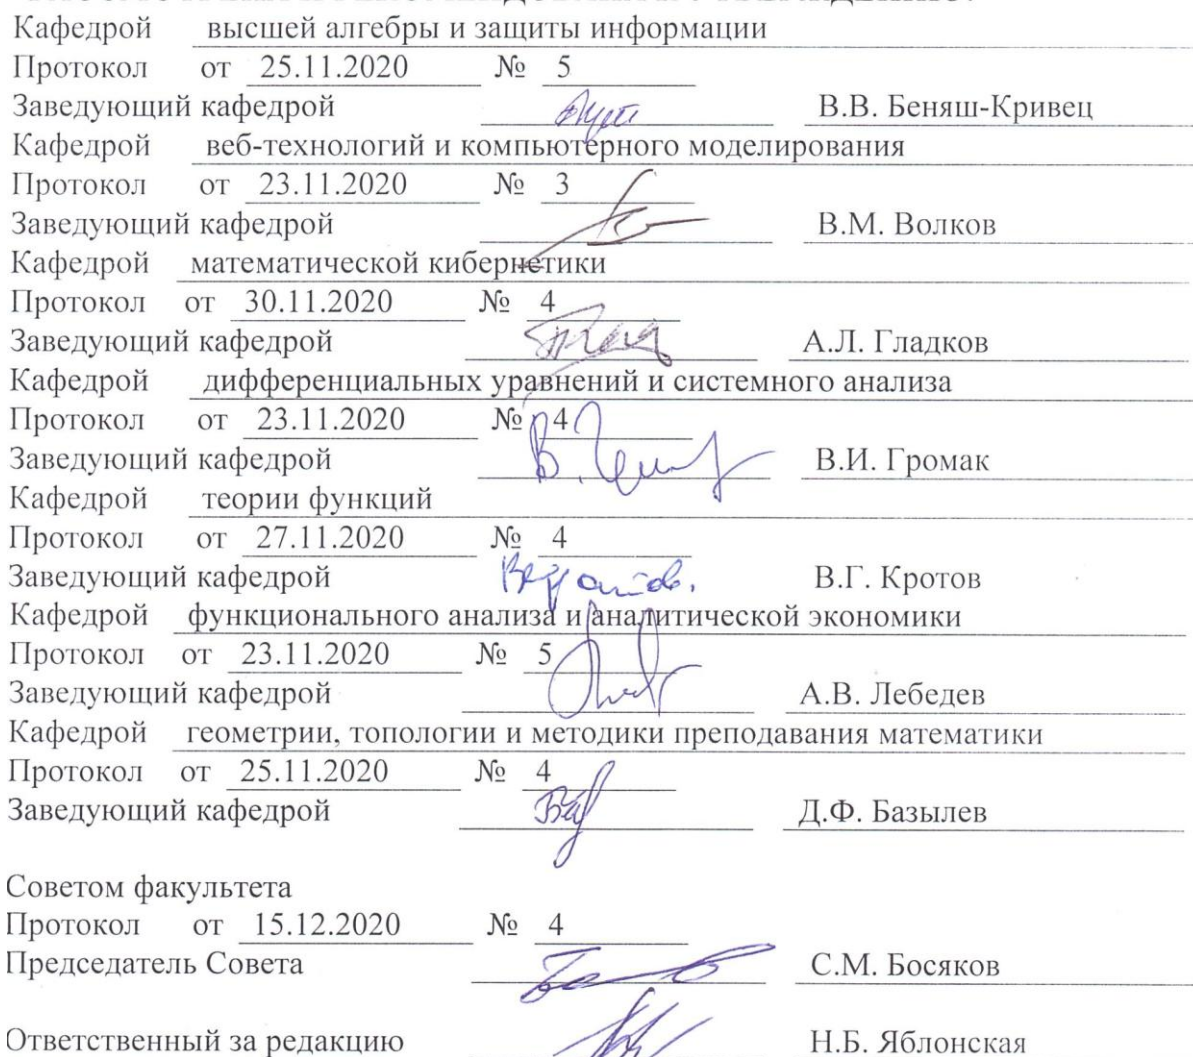 Кафедрой высшей алгебры и защиты информации
Протокол от 25.11.2020 № 5
Заведующий кафедрой В.В. Беняш-Кривец
Кафедрой веб-технологий и компьютерного моделирования
Протокол от 23.11.2020 № 3
Заведующий кафедрой В.М. Волков
Кафедрой математической кибернетики
Протокол от 30.11.2020 № 4
Заведующий кафедрой А.Л. Гладков
Кафедрой дифференциальных уравнений и системного анализа
Протокол от 23.11.2020 № 4
Заведующий кафедрой В.И. Громак
Кафедрой теории функций
Протокол от 27.11.2020 № 4
Заведующий кафедрой В.Г. Кротов
Кафедрой функционального анализа и аналитической экономики
Протокол от 23.11.2020 № 5
Заведующий кафедрой А.В. Лебедев
Кафедрой геометрии, топологии и методики преподавания математики
Протокол от 25.11.2020 № 4
Заведующий кафедрой Д.Ф. Базылев
Советом факультета
Протокол от 15.12.2020 № 4
Председатель Совета С.М. Босяков
Ответственный за редакцию Н.Б. Яблонская